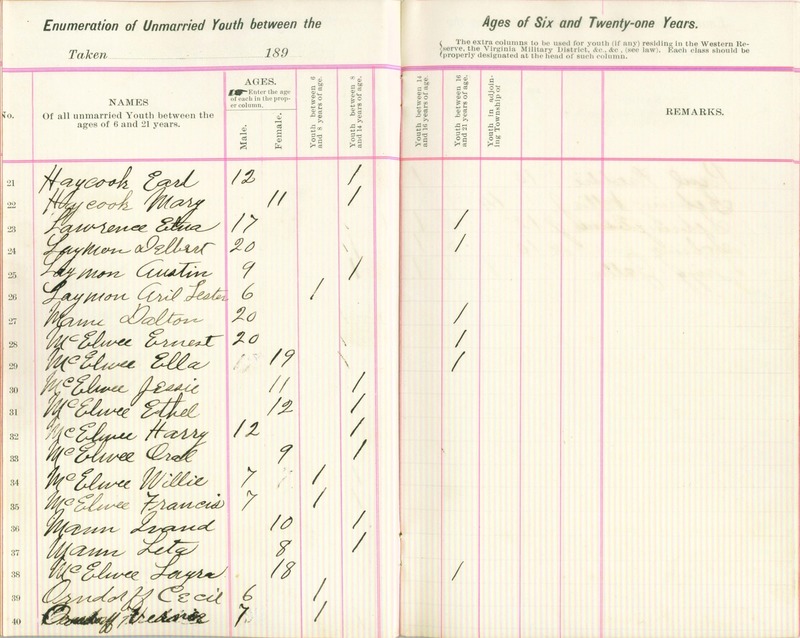 Enumeration of Unmarried Youth between the Ages of Six and Twenty-one Years.
Taken 189
The extra columns to be used for youth (if any) residing in the Western Re-
serve, the Virginia Military District, &c., &c., (see law). Each class should be
properly designated at the head of such column.
No.
NAMES
Of all unmarried Youth between the
ages of 6 and 21 years.
AGES.
Enter the age
of each in the prop-
er column.
Male.
Female.
Youth between 6
and 8 years of age.
Youth between 8
and 14 years of age.
Youth between 14
and 16 years of age.
Youth between 16
and 21 years of age.
Youth in adjoin-
ing Township of
REMARKS.
21 Haycook Earl 12 1
22 Haycook Mary 11 1
23 Lawrence Etna 17 1
24 Laymon Delbert 20 1
25 Laymon Austin 9 1
26 Laymon Aril Lester 6 1
27 Mann Dalton 20 1
28 McElwee Ernest 20 1
29 McElwee Ella 19 1
30 McElwee Jessie 11 1
31 McElwee Ethel 12 1
32 McElwee Harry 12 1
33 McElwee Oral 9 1
34 McElwee Willie 7 1
35 McElwee Francis 7 1
36 Mann 10 1
37 Mann Leta 8 1
38 McElwee Layra 18 1
39 Orndorff Cecil 6 1
40 7 1